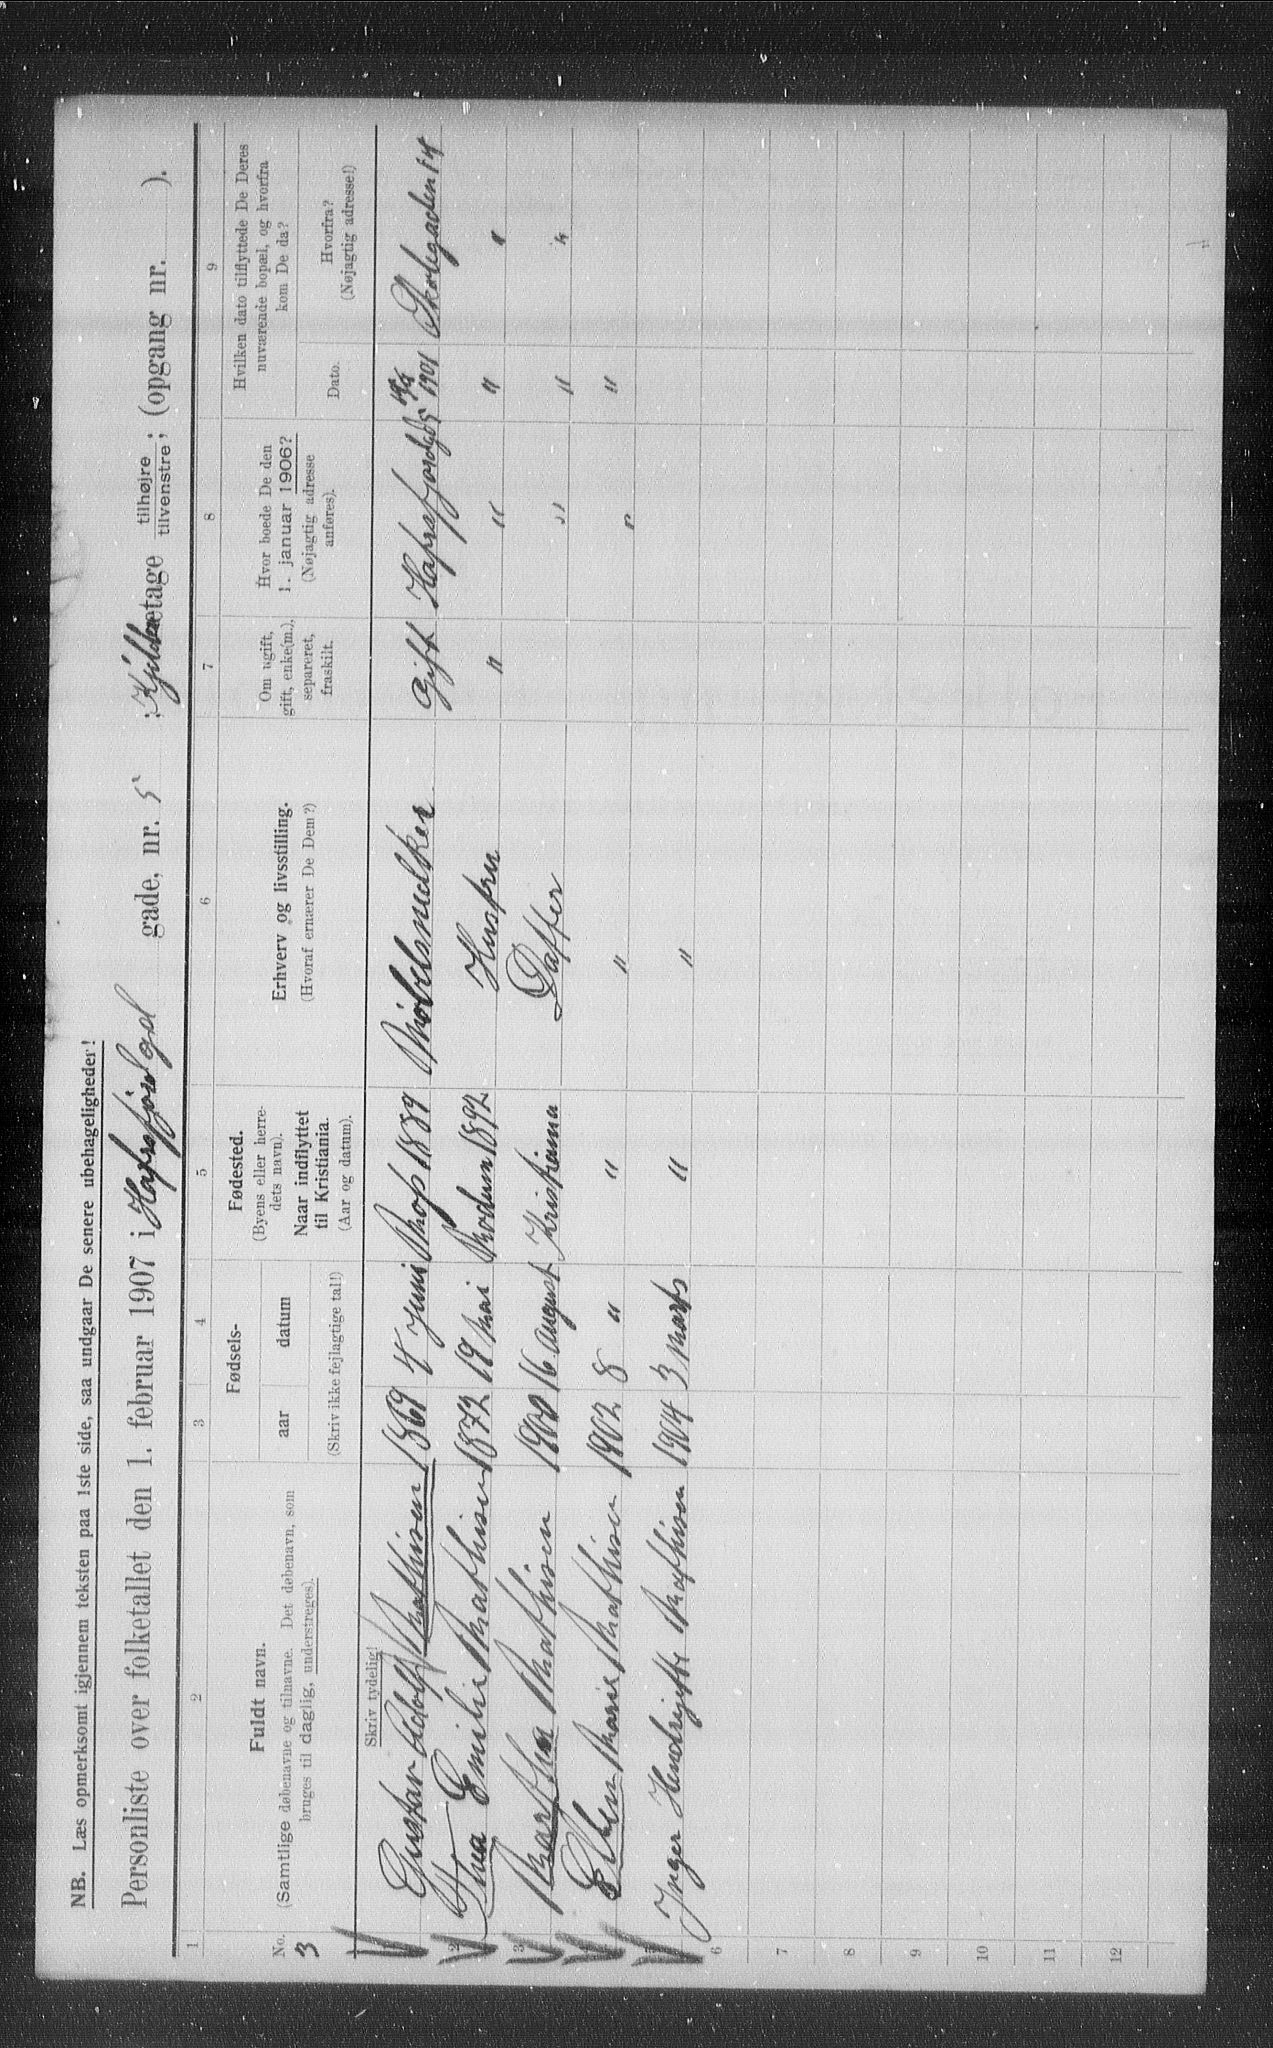 NB. Læs opmerksomt igjennem teksten paa 1ste side, saa undgaar De senere ubehageligheder!
Personliste over folketallet den 1. februar 1907 i Hafrsfjord gd gade, nr. 5 : Kjelder etage tilhøjre / tilvenstre; (opgang nr. ).
1 2 3 4 5 6 7 8 9
No. 3
Fuldt navn.
(Samtlige døbenavne og tilnavne. Det døbenavn, som
bruges til daglig, understreges).
Skriv tydelig!
Fødsels-
aar datum
(Skriv ikke fejlagtige tal!)
Fødested.
(Byens eller herre-
dets navn).
Naar indflyttet
til Kristiania.
(Aar og datum).
Erhverv og livsstilling.
(Hvoraf ernærer De Dem?)
Om ugift,
gift, enke(m.),
separeret,
fraskilt.
Hvor boede De den
1. januar 1906?
(Nøjagtig adresse
anføres).
Hvilken dato tilflyttede De Deres
nuværende bopæl, og hvorfra
kom De da?
Dato.
Hvorfra?
(Nøjagtig adresse!)
Gustav Adolf Mathisen 1869 4 juni Moss 1889 Møbelsnedker Gift Hafrsfjordgd 5 1901 Skolegaden 14
2 Tina Emilie Mathisen 1872 19 Mai Modum 1892 Hustru " " " "
3 Martha Mathisen 1900 16 august Kristiania Datter " " "
Ellen Marie Mathisen 1902 8 " " " " "
5 Inger Hendrijette Mathisen 1904 3 Marts " "
6
7
8
9
10
11
12